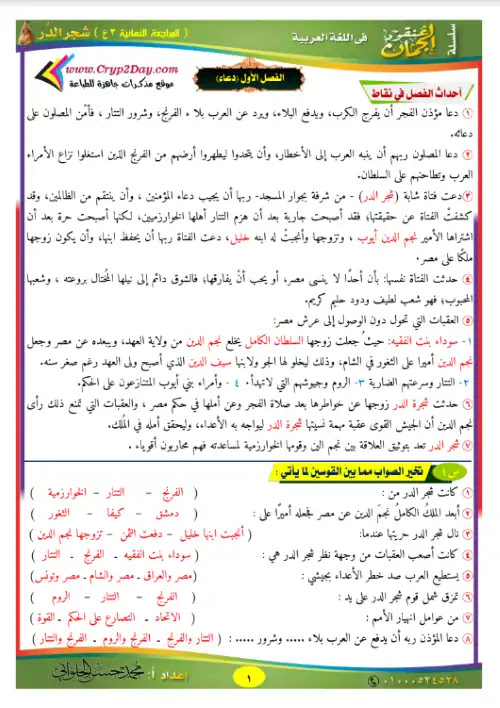 سلسلة
اغتنم الجمان
فى اللغة العربية
( المراجعة النهائية ٣ع ) شجر الدر
www.Cryp2Day.com
موقع مذكرات جاهزة للطباعة
الفصل الأول (دعاء)
أحداث الفصل في نقاط
① دعا مؤذن الفجر أن يفرج الكرب، ويدفع البلاء، ويرد عن العرب بلاء الفرنج، وشرور التتار، فأمَّن المصلون على
دعائه.
② دعا المصلون ربهم أن ينبه العرب إلى الأخطار، وأن يتحدوا ليطهروا أرضهم من الفرنج الذين استغلوا نزاع الأمراء
العرب وتطاحنهم على السلطان.
③ دعت فتاة شابة (شجر الدر) - من شرفة بجوار المسجد- ربها أن يجيب دعاء المؤمنين ، وأن ينتقم من الظالمين، وقد
كشفتْ الفتاة عن حقيقتها؛ فقد أصبحت جارية بعد أن هزم التتار أهلها الخوارزميين، لكنها أصبحت حرة بعد أن
اشتراها الأمير نجم الدين أيوب ، وتزوجها وأنجبتْ له ابنه خليل، دعت الفتاة ربها أن يحفظ ابنها، وأن يكون زوجها
ملكًا على مصر.
④ حدثت الفتاة نفسها: بأن أحدًا لا ينسى مصر، أو يحب أنْ يفارقها؛ فالشوق دائم إلى نيلها المُختال بروعته ، وشعبها
المحبوب؛ فهو شعب لطيف ودود حليم كريم.
⑤ العقبات التي تحول دون الوصول إلى عرش مصر:
١- سوداء بنت الفقيه: حيثُ جُعلت زوجها السلطان الكامل يخلع نجم الدين من ولاية العهد، ويبعده عن مصر وجعل
نجم الدين أميرا على الثغور في الشام، وذلك ليخلو لها الجو ولابنها سيف الدين الذي أصبح ولى العهد رغم صغر سنه.
٢- التتار وسرعتهم الضارية ٣- الروم وجيوشهم التي لاتهدأ. ٤ - وأمراء بني أيوب المتنازعون على الحكم.
⑥ حدثت شجرة الدر زوجها عن خواطرها بعد صلاة الفجر وعن أملها في حكم مصر ، والعقبات التي تمنع ذلك رأى
نجم الدين أن الجيش القوى عقبة مهمة نسيتها شجرة الدر ليواجه به الأعداء، وليحقق أمله في المُلك.
⑦ شجر الدر تعد بتوثيق العلاقة بين نجم الين وقومها الخوارزمية لمساعدته فهم محاربون أقوياء .
س١ تخير الصواب مما بين القوسين لما يأتي :
① كانت شجر الدر من : ( الفرنج - التتار - الخوارزمية )
② أبعد الملكُ الكاملُ نجمَ الدين عن مصر فجعله أميرًا على : ( دمشق - كيفا - الثغور )
③ نال شجر الدر حريتها عندما: ( أنجبت ابنها خليل - دفعت الثمن - تزوجها نجم الدين )
④ كانت أصعب العقبات من وجهة نظر شجر الدر هي : ( سوداء بنت الفقيه - الفرنج - التتار )
⑤ يستطيع العرب صد خطر الأعداء بجيشي : (مصر والعراق - مصر والشام - مصر وتونس)
⑥ تمزق شمل قوم شجر الدر على يد : ( الفرنج - التتار - الروم )
⑦ من عوامل انهيار الأمم : ( الاتحاد - التصارع على الحكم - القوة )
⑧ دعا المؤذن ربه أن يدفع عن العرب بلاء ..... وشرور ..... : ( التتار والفرنج - الفرنج والروم - الفرنج والتتار)
إعداد أ: محمد حسن الحلواني
١
٠١٠٠٠٥٢٤٥٢٨